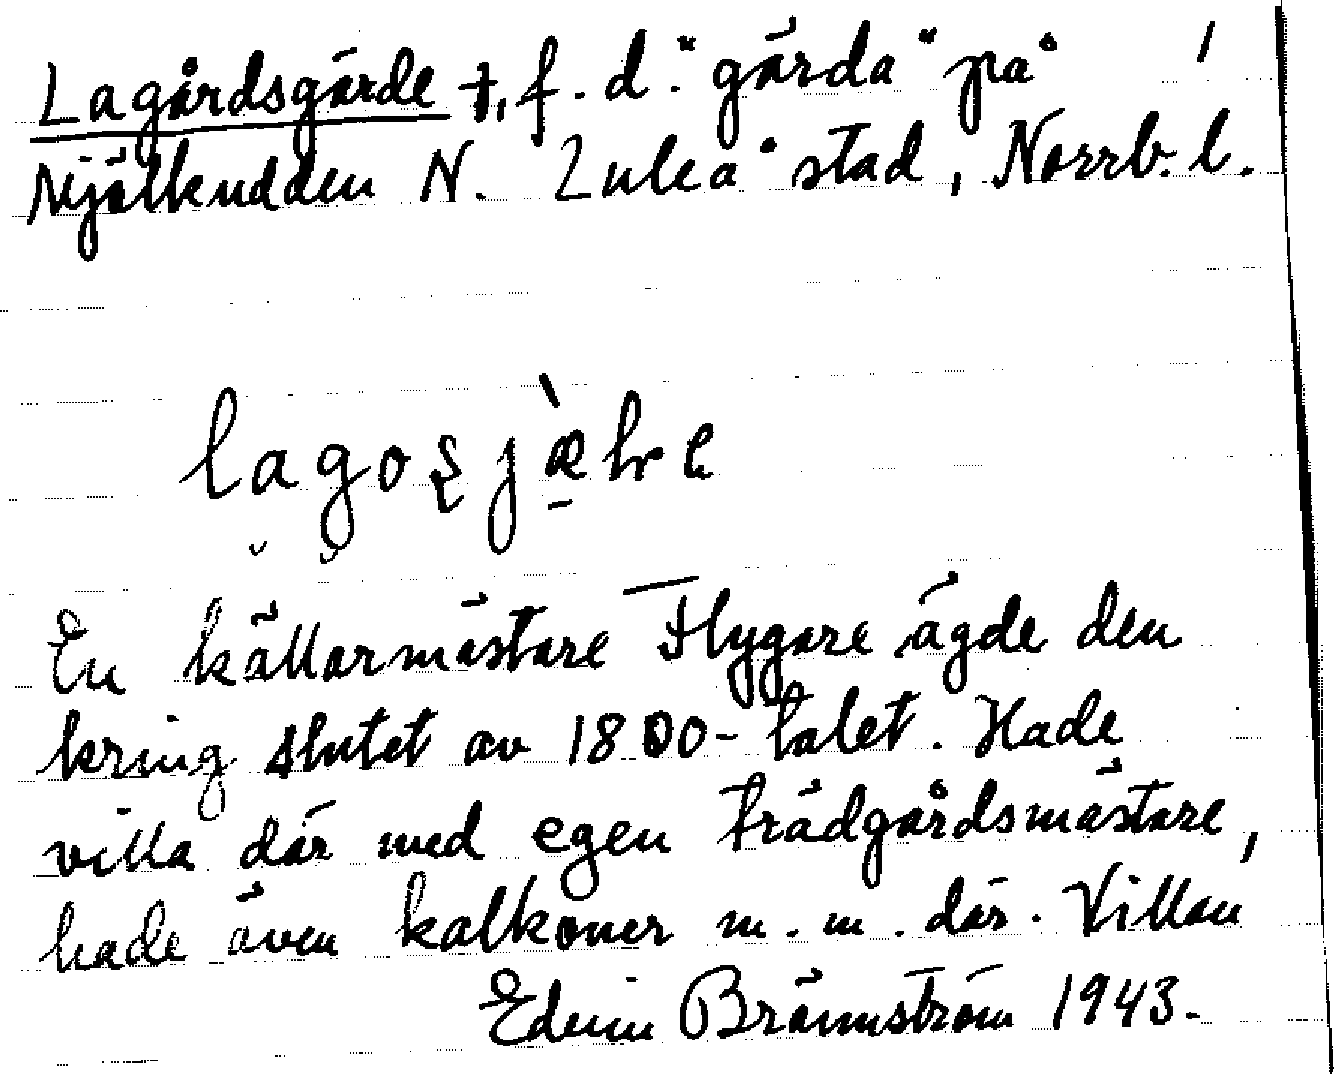 Lagårdsgärde †, f. d. "gärda" på 1
Mjölkudden N. Luleå stad, Norrb. l.
En källarmästare Flygare ägde den
kring slutet av 1800-talet. Hade
villa där med egen trädgårdsmästare,
hade även kalkoner m. m. där. Villan
Edvin Brännström 1943.